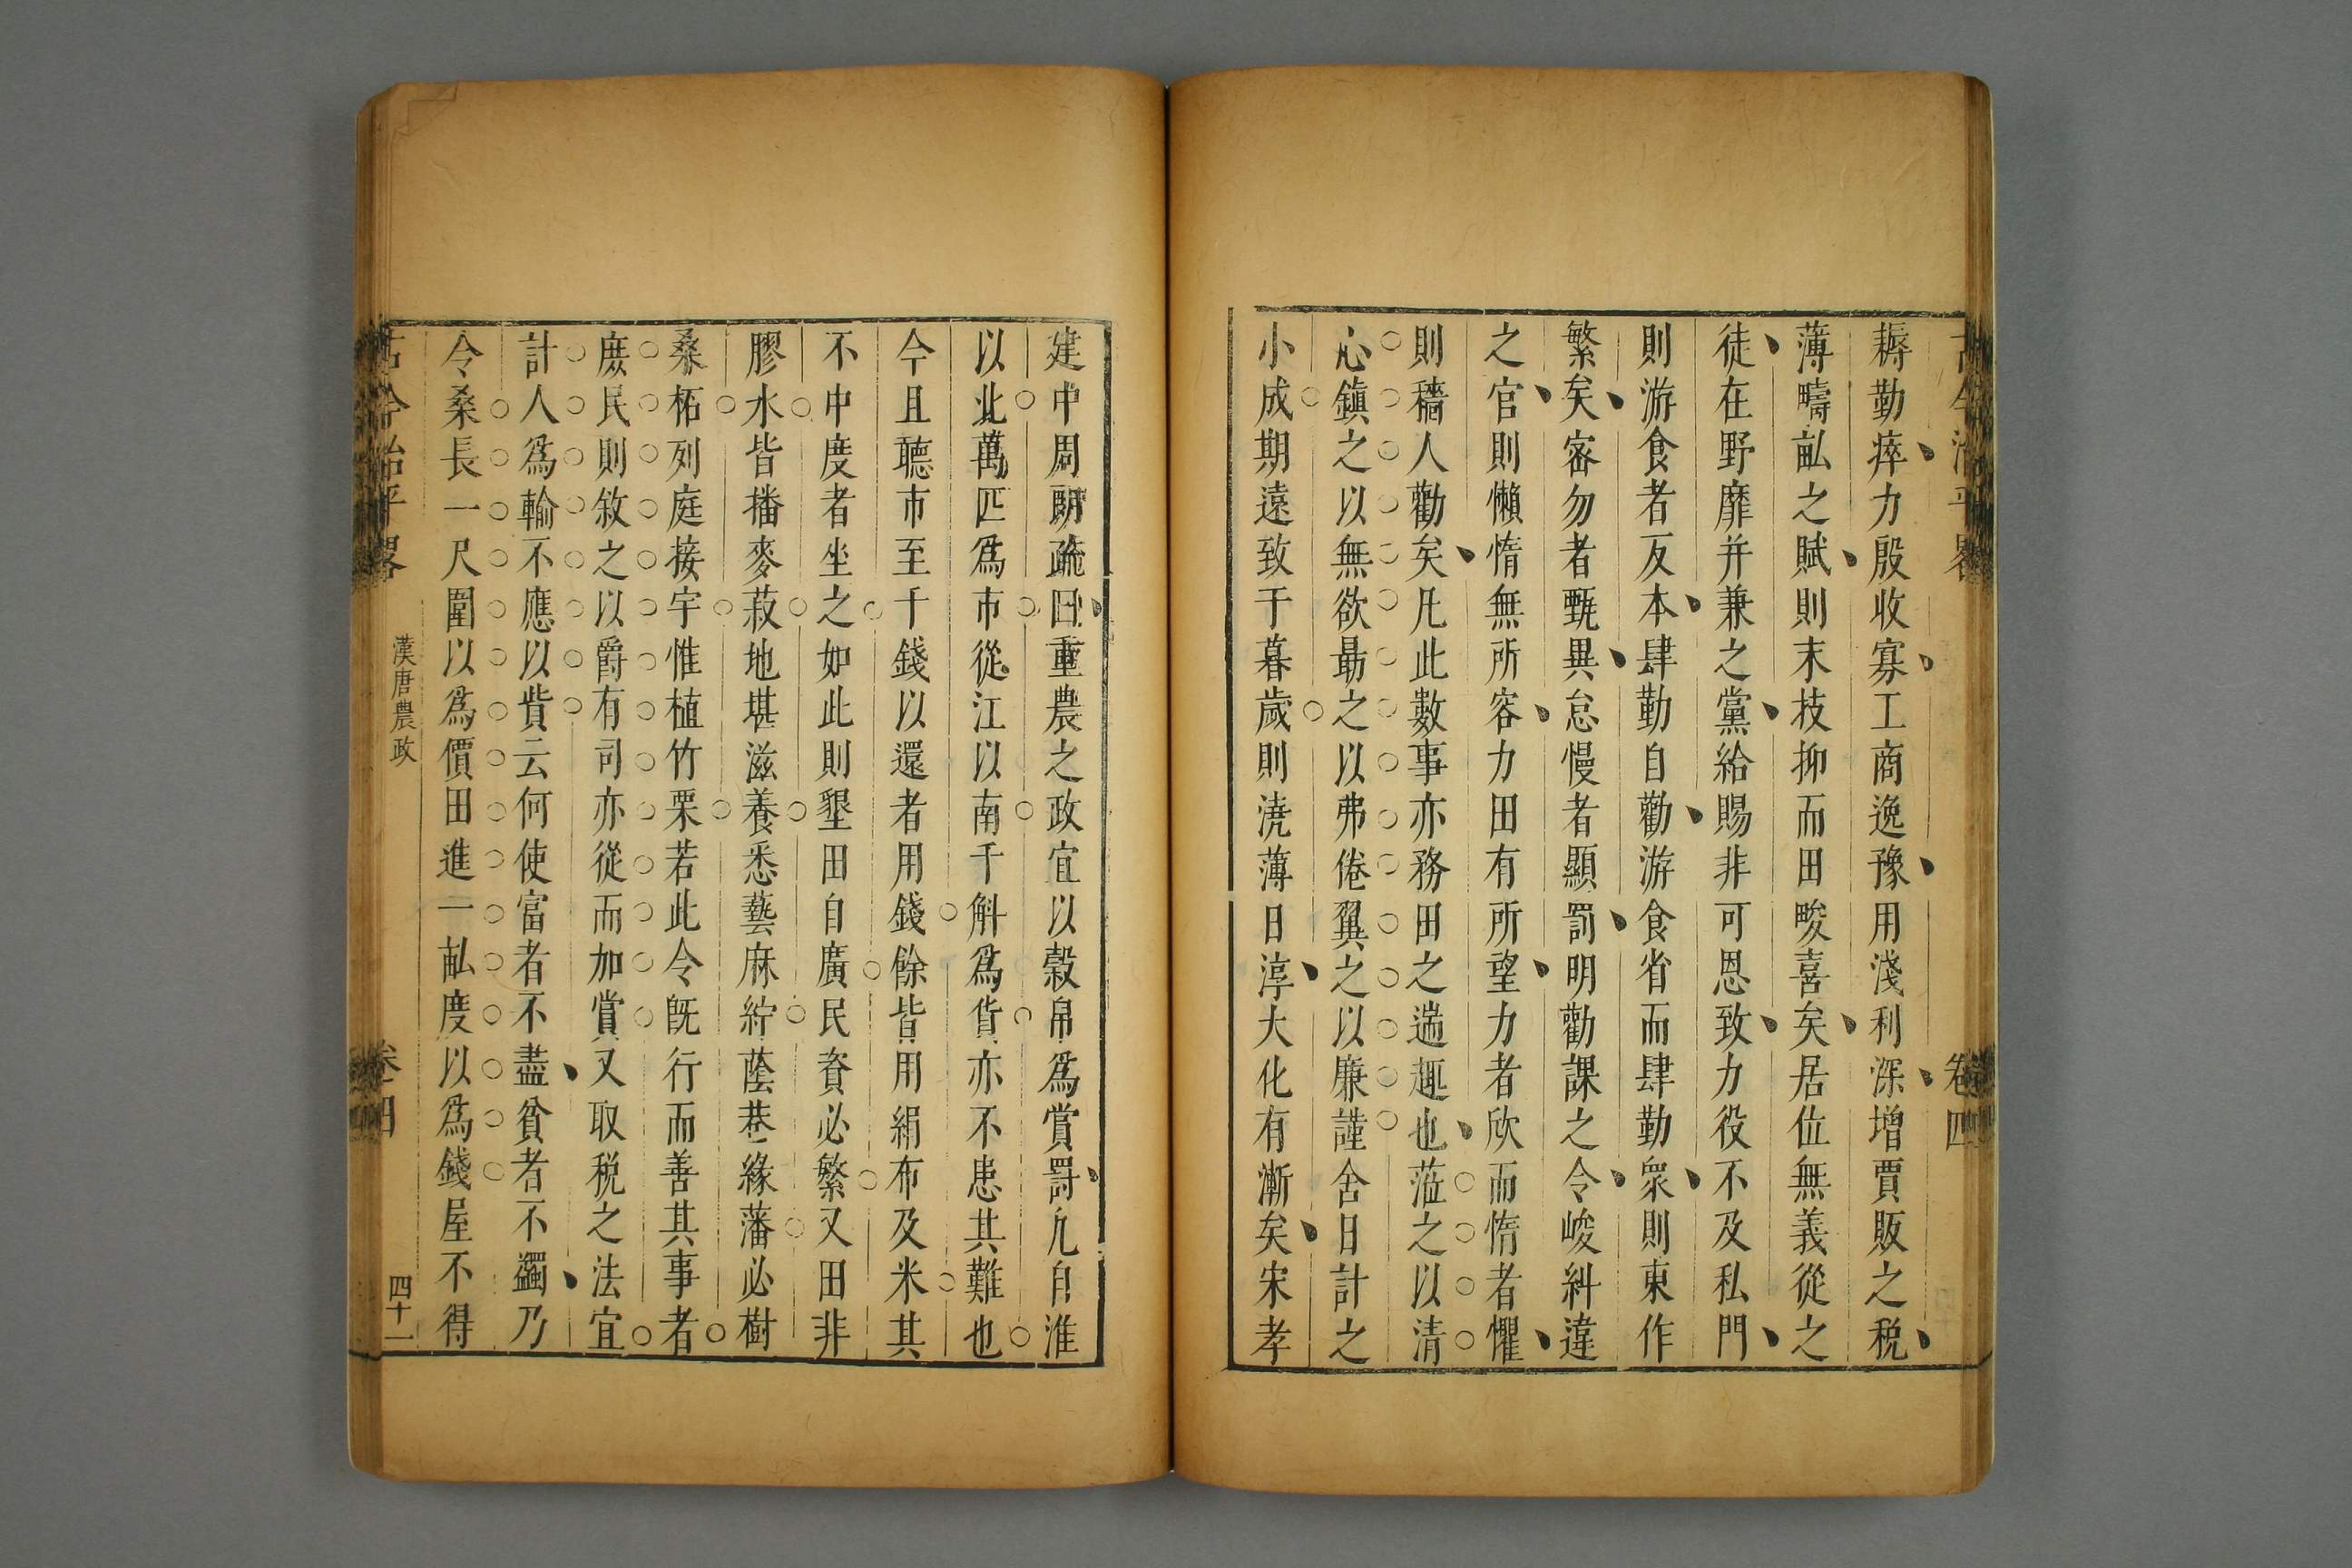 耨勤瘁力殷收寡工商逸豫用淺利深增賈販之税
薄疇畝之賦則末技抑而田畯喜矣居位無義從之
徒在野靡并兼之黨給賜非可恩致力役不及私門
則游食者反本肆勤自勸游食省而肆勤衆則東作
繁矣密勿者甄異怠慢者顯罰明勸課之令峻糾違
之官則懶惰無所容力田有所望力者欣而惰者懼
則穡人勸矣凡此數事亦務田之遄趣也蒞之以清
心鎭之以無欲勗之以弗倦翼之以廉謹舍日計之
小成期遠致于暮歲則澆薄日淳大化有漸矣宋孝
建中周朗疏曰重農之政宜以穀帛爲賞罸凢自淮
以北萬匹爲市從江以南千斛爲貨亦不患其難也
今且聽市至千錢以還者用錢餘皆用絹布及米其
不中度者坐之如此則墾田自廣民資必繁又田非
膠水皆播麥菽地堪滋養悉藝麻紵蔭巷緣藩必樹
桑柘列庭接宇惟植竹栗若此令旣行而善其事者
庶民則敘之以爵有司亦從而加賞又取税之法宜
計人爲輸不應以貲云何使富者不盡貧者不蠲乃
令桑長一尺圍以爲價田進一畝度以爲錢屋不得
古今治平畧
漢唐農政
卷四
四十一